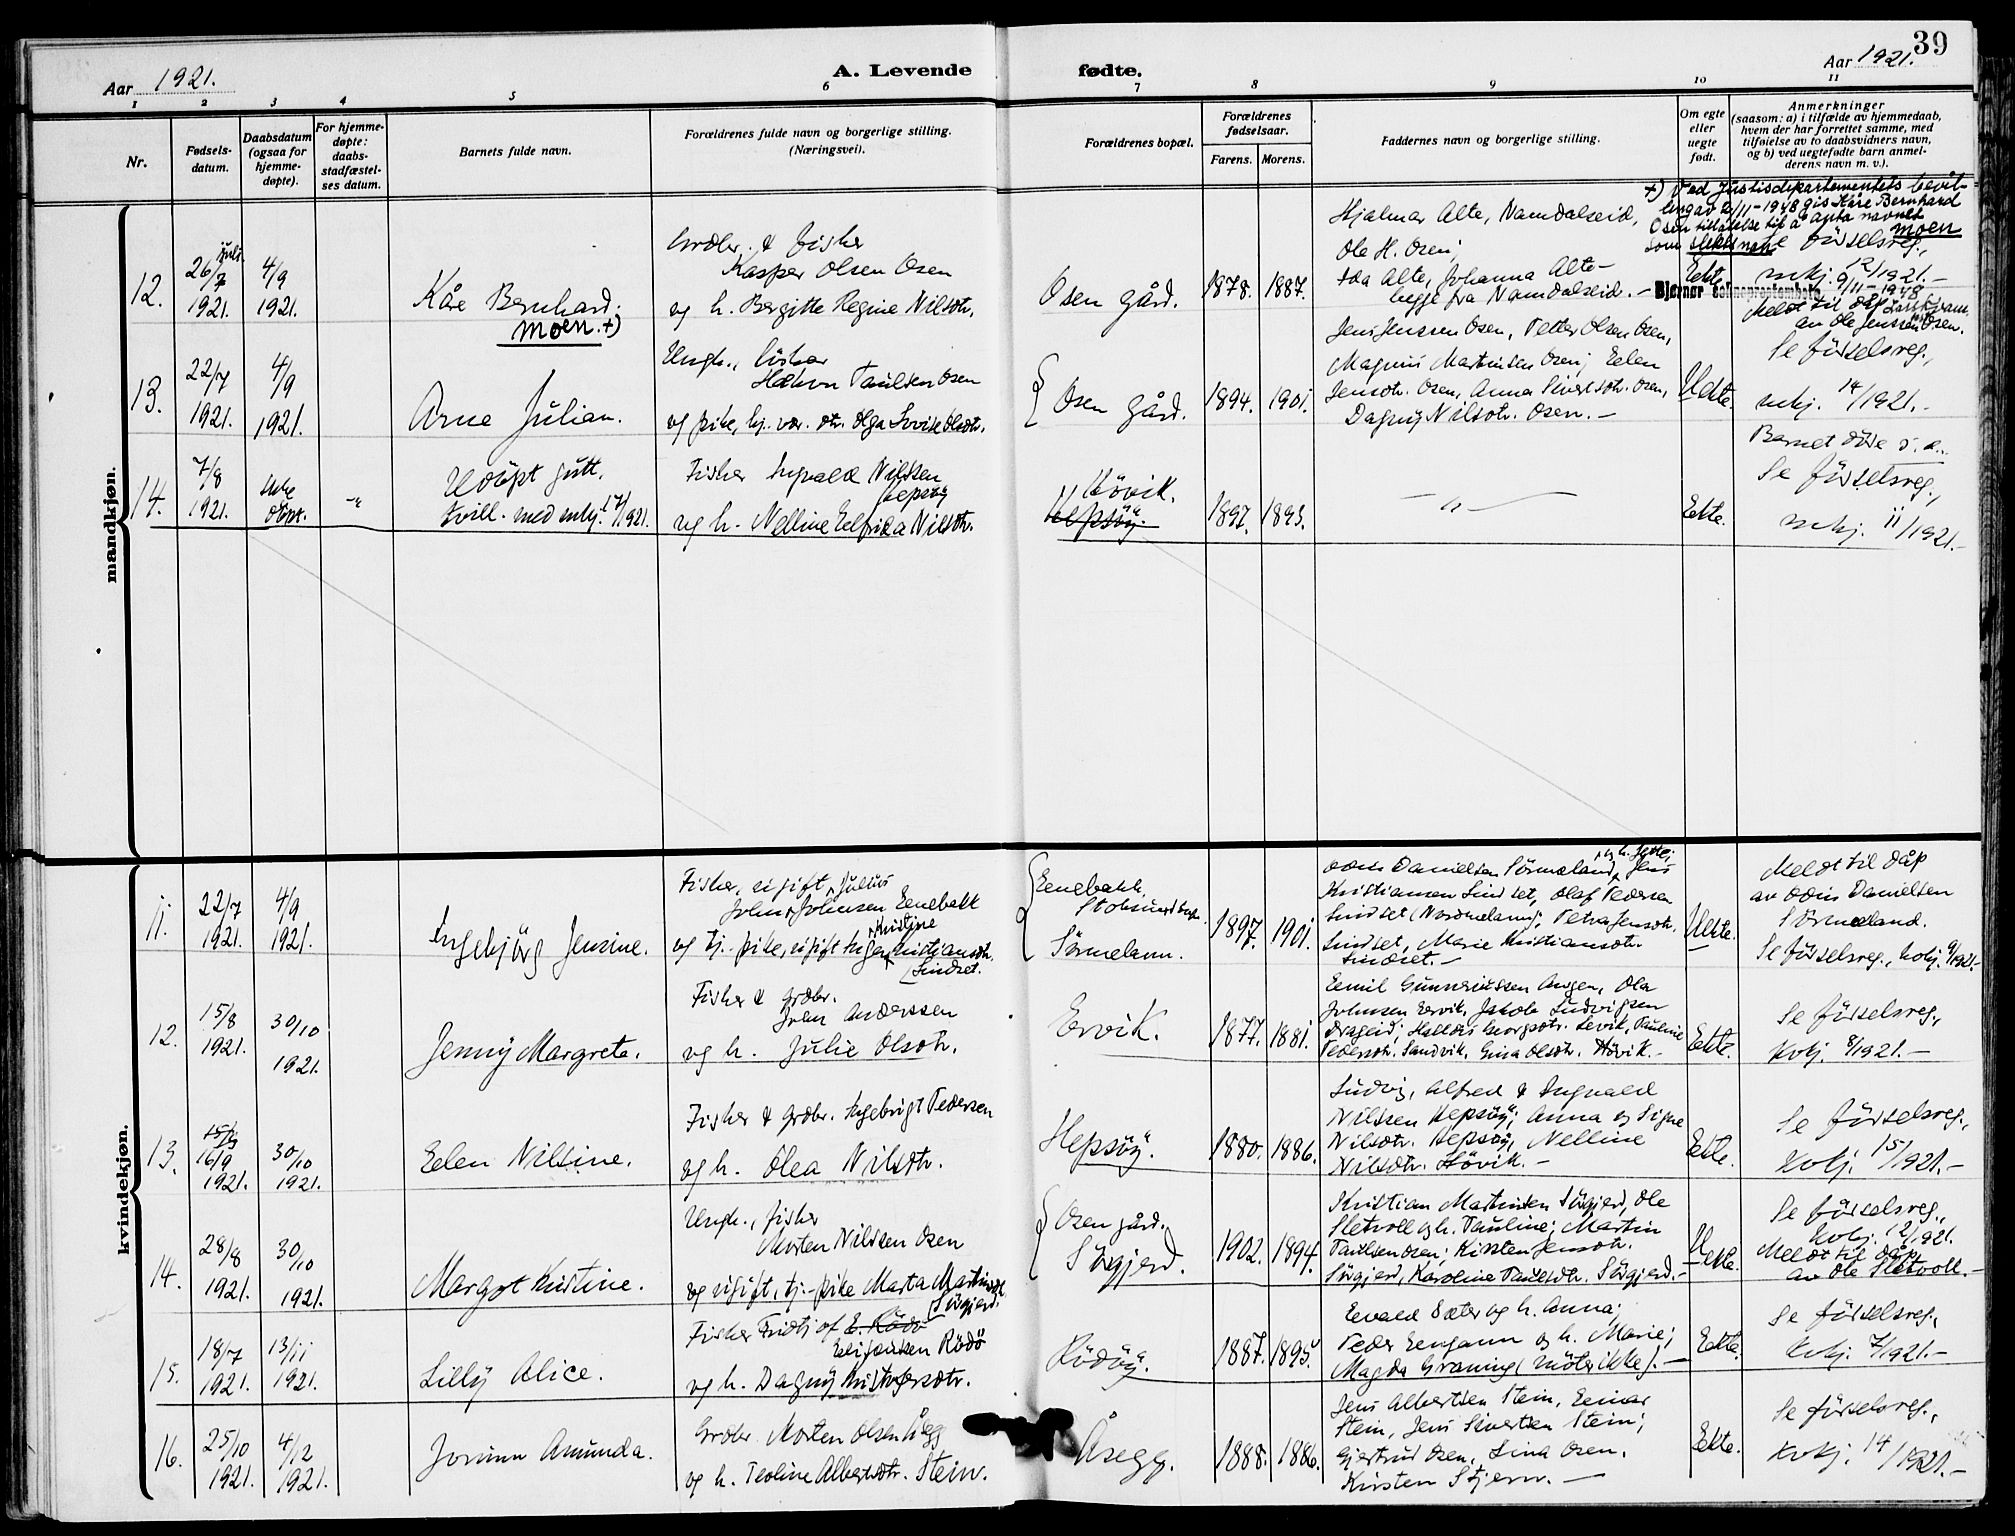 39
Aar 1921.
A. Levende fødte.
Aar 1921.
1 2 3 4 5 6 7 8 9 10 11
Nr.
Fødsels-
datum.
Daabsdatum
(ogsaa for
hjemme-
døpte).
For hjemme-
døpte:
daabs-
stadfæstel-
ses datum.
Barnets fulde navn.
Forældrenes fulde navn og borgerlige stilling.
(Næringsvei).
Forældrenes bopæl.
Forældrenes
fødselsaar.
Farens. Morens.
Faddernes navn og borgerlige stilling.
Om egte
eller
uegte
født.
Anmerkninger
(saasom: a) i tilfælde av hjemmedaab,
hvem der har forrettet samme, med
tilføielse av to daabsvidners navn,
og b) ved uegtefødte barn anmel-
derens navn m. v.).
mandkjøn.
12.
26/7 juli
1921.
4/9
1921.
Kåre Bernhard.
Moen. +)
Grdbr. & fisker
Kasper Olsen Osen
og h. Bergitte Regine Nilsdtr.
Osen gård.
1878. 1887.
Hjalmar Alte, Namdalseid,
Ole H. Osen;
Ida Alte, Johanna Alte –
begge fra Namdalseid. –
Ekte
+) Ved Justisdepartementets bevil-
ling av 2/11-1948 gis Kåre Bernhard
Osen tillatelse til å anta navnet
Moen
som slektsnavn
Se fødselsreg.,
mkj. 12/1921. –
Bjørnør sokneprestembete
9/11-1948
13.
22/7
1921.
4/9
1921.
Arne Julian.
Ungk., fisker
Håkon Paulsen Osen
og pike, hj. vær. dtr. Olga Lovise Olsdtr.
Osen gård.
1894. 1901.
Jens Jenssen Osen, Petter Olsen Osen,
Magnus Martinsen Osen; Ellen
Jensdtr. Osen, Anna Sivertsdtr. Osen,
Dagny Nilsdtr. Osen. –
Uekte.
Meldt til dåp
av Ole Jenssen Osen.
Se fødselsreg.,
mkj. 14/1921. –
14.
7/8
1921.
Ikke
døpt.
–"
Udøpt gutt.
tvill. med mkj. 17/1921.
Fisker Ingvald Nilssen
Hepsøy
og h. Nelline Elfrida Nilsdtr.
Høvik.
Hepsøy.
1897. 1893.
– " –
Ekte.
Barnet døde s. d.
Se fødselsreg.,
mkj. 11/1921. –
kvindekjøn.
11.
22/7
1921.
4/9
1921.
Ingebjørg Jensine.
Fisker, ugift Julius
Johan Johnsen Enebakk
Kristine
og tj.-pike, ugift Inger Kristiansdtr.
Sindset.
Enebakk,
Stoksund
Sørmeland.
1897. 1901.
Odin Danielsen Sørmeland og h. Jette; Jens
Kristiansen Sindset, Olaf Pedersen
Sindset (Nordmeland); Petra Jensdtr.
Sindset, Marie Kristiansdtr.
Sindset. –
Uekte.
Meldt til dåp
av Odin Danielsen
Sørmeland.
Se fødselsreg., kvkj. 9/1921. –
12.
15/8
1921.
30/10
1921.
Jenny Margrete.
Fisker & grdbr.
John Anderssen
og h. Julie Olsdtr.
Ervik.
1877. 1881.
Emil Gunneriussen Angen, Ola
Johnsen Ervik, Jakob Ludvigsen
Drageid; Halldis Georgsdtr. Levik, Pauline
Pedersdtr. Sandvik, Gina Olsdtr. Høvik. –
Ekte.
Se fødselsreg.,
kvkj. 8/1921. –
13.
16/9
1921.
30/10
1921.
Ellen Nilsine.
Fisker & grdbr. Ingebrigt Pedersen
og h. Olea Nilsdtr.
Hepsøy.
1880. 1886.
Ludvig, Alfred & Ingvald
Nilssen Hepsøy; Anna og Signe
Nilsdtr. Hepsøy, Nelline
Nilsdtr. Høvik. –
Ekte.
Se fødselsreg.,
kvkj. 15/1921. –
14.
28/8
1921.
30/10
1921.
Margot Kristine.
Ungk., fisker
Morten Nilssen Osen
og ugift, tj.-pike Marta Martinsdtr.
Sørgjerd.
Osen gård.
Sørgjerd.
1902. 1894.
Kristian Martinsen Sørgjerd, Ole
Sletvoll og h. Pauline; Martin
Paulsen Osen; Kirsten Jensdtr.
Sørgjerd, Karoline Paulsdtr. Sørgjerd. –
Uekte.
Se fødselsreg.,
kvkj. 12/1921.
Meldt til dåp
av Ole Sletvoll. –
15.
18/7
1921.
13/11
1921.
Lilly Alice.
Fisker Fridtjof E. Rödö
Elisæussen Rödö
og h. Dagny Kristofersdtr.
Rödöy.
1887. 1895.
Evald Sæter og h. Anna;
Peder Engann og h. Marie;
Magda Graning (møter ikke). –
Ekte.
Se fødselsreg.,
kvkj. 7/1921. –
16.
25/10
1921.
4/12
1921.
Jorunn Amunda.
Grdbr. Morten Olsen Åsegg
og h. Teoline Albertsdtr. Stein.
Åsegg.
1888. 1886.
Jens Albertsen Stein, Einar
Stein, Jens Sivertsen Stein;
Gjertrud Osen, Lina Osen,
Kirsten Stjern. –
Ekte.
Se fødselsreg.,
kvkj. 14/1921. –